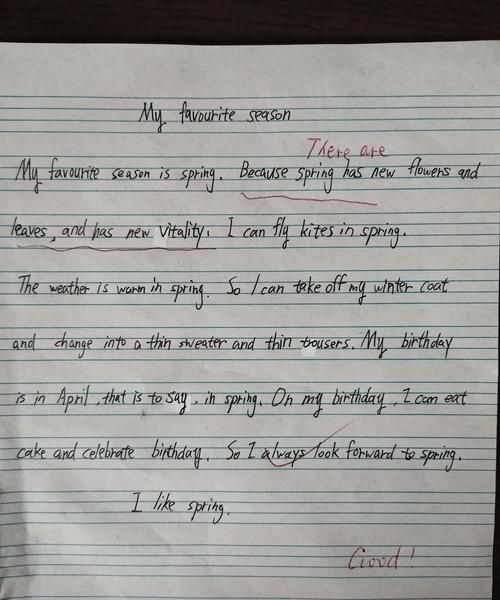 My favourite season
There are
My favourite season is spring. Because spring has new flowers and
leaves, and has new vitality. I can fly kites in spring.
The weather is warm in spring. So I can take off my winter coat
and change into a thin sweater and thin trousers. My birthday
is in April, that is to say, in spring. On my birthday, I can eat
cake and celebrate birthday. So I always look forward to spring.
I like spring.
Good!